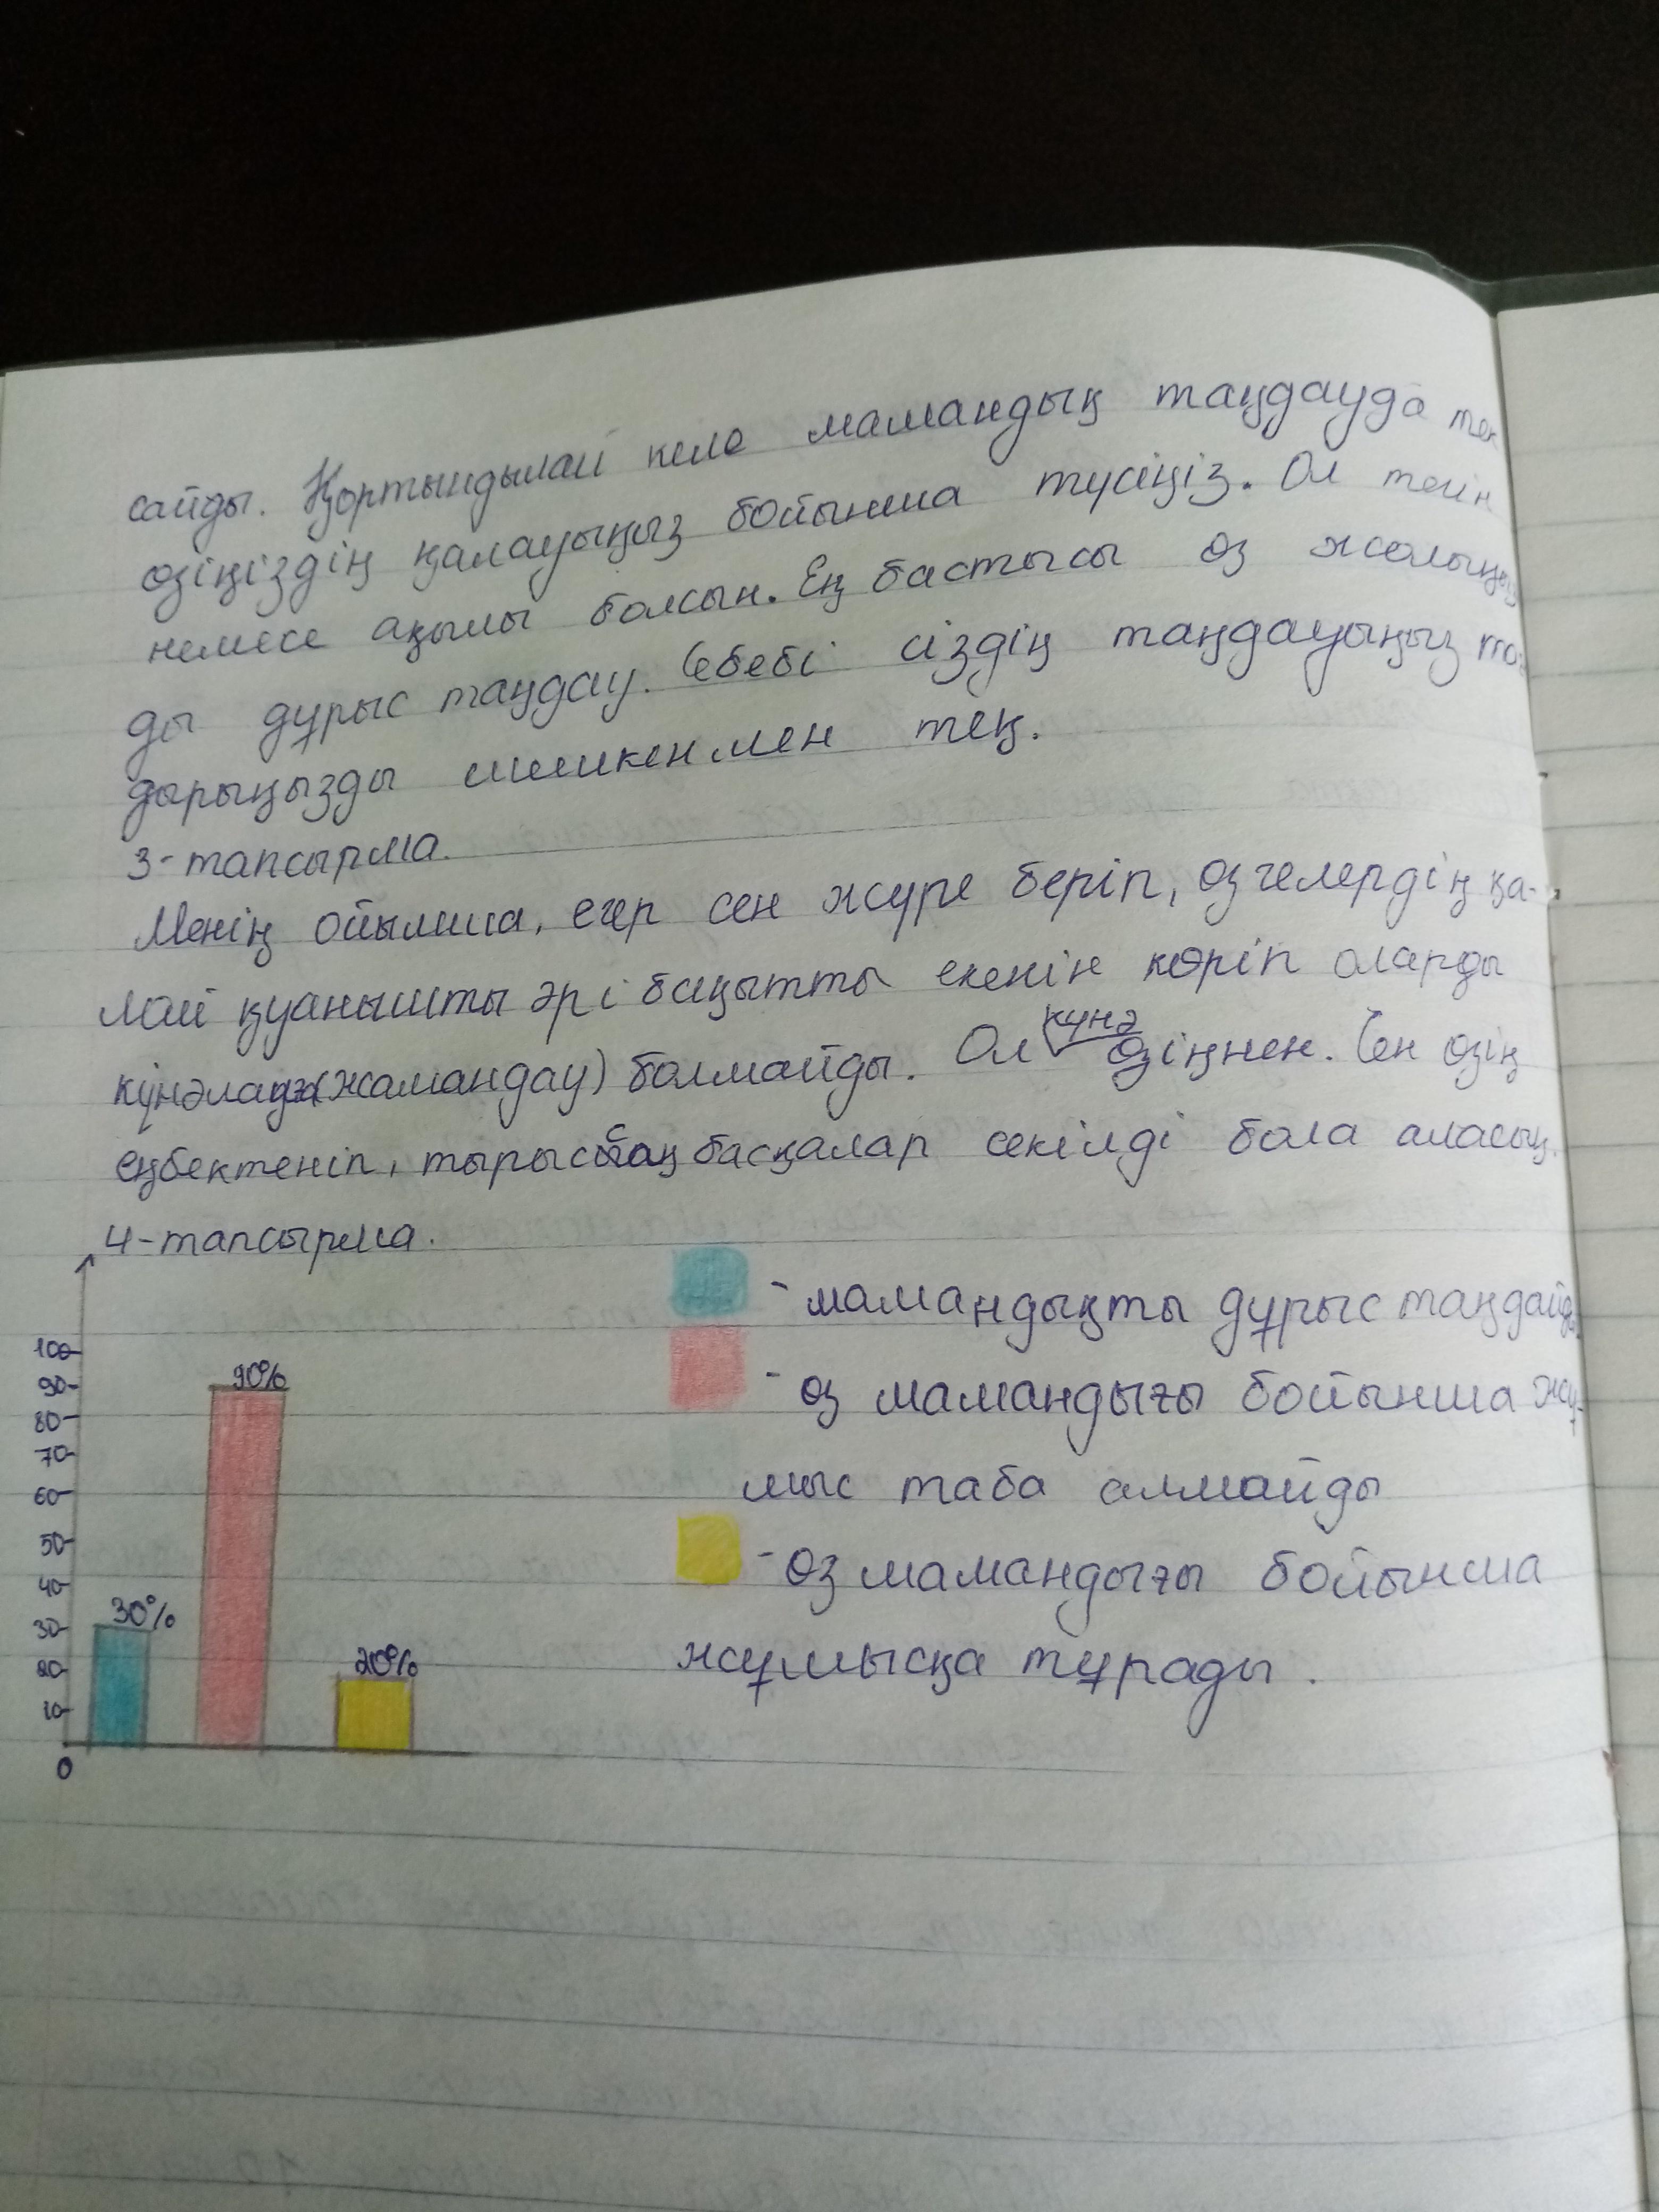 сайды. Қортындылай келе мамандық таңдауда тек
өзіңіздің қалауыңыз бойынша түсіңіз. Ол тегін
немесе ақылы болсын. Ең бастысы өз жолыңыз
ды дұрыс таңдау. Себебі сіздің таңдауыңыз
дырыңызды шешкенмен тең.
3-тапсырма.
Менің ойымша, егер сен жүре беріп, өзгелердің қа-
лай қуанышты әрі бақытты екенін көріп оларды
күнә
(жамандау) болмайды. Ол өзіңнен. Сен өзің
еңбектеніп, басқалар секілді бола аласың.
4-тапсырма.
- мамандықты дұрыс таңдайды
100
90%
90
- өз мамандығы бойынша жұ-
80
70
мыс таба алмайды
60
50
- өз мамандығы бойынша
40
30%
30
жұмысқа тұрады.
20%
20
10
0